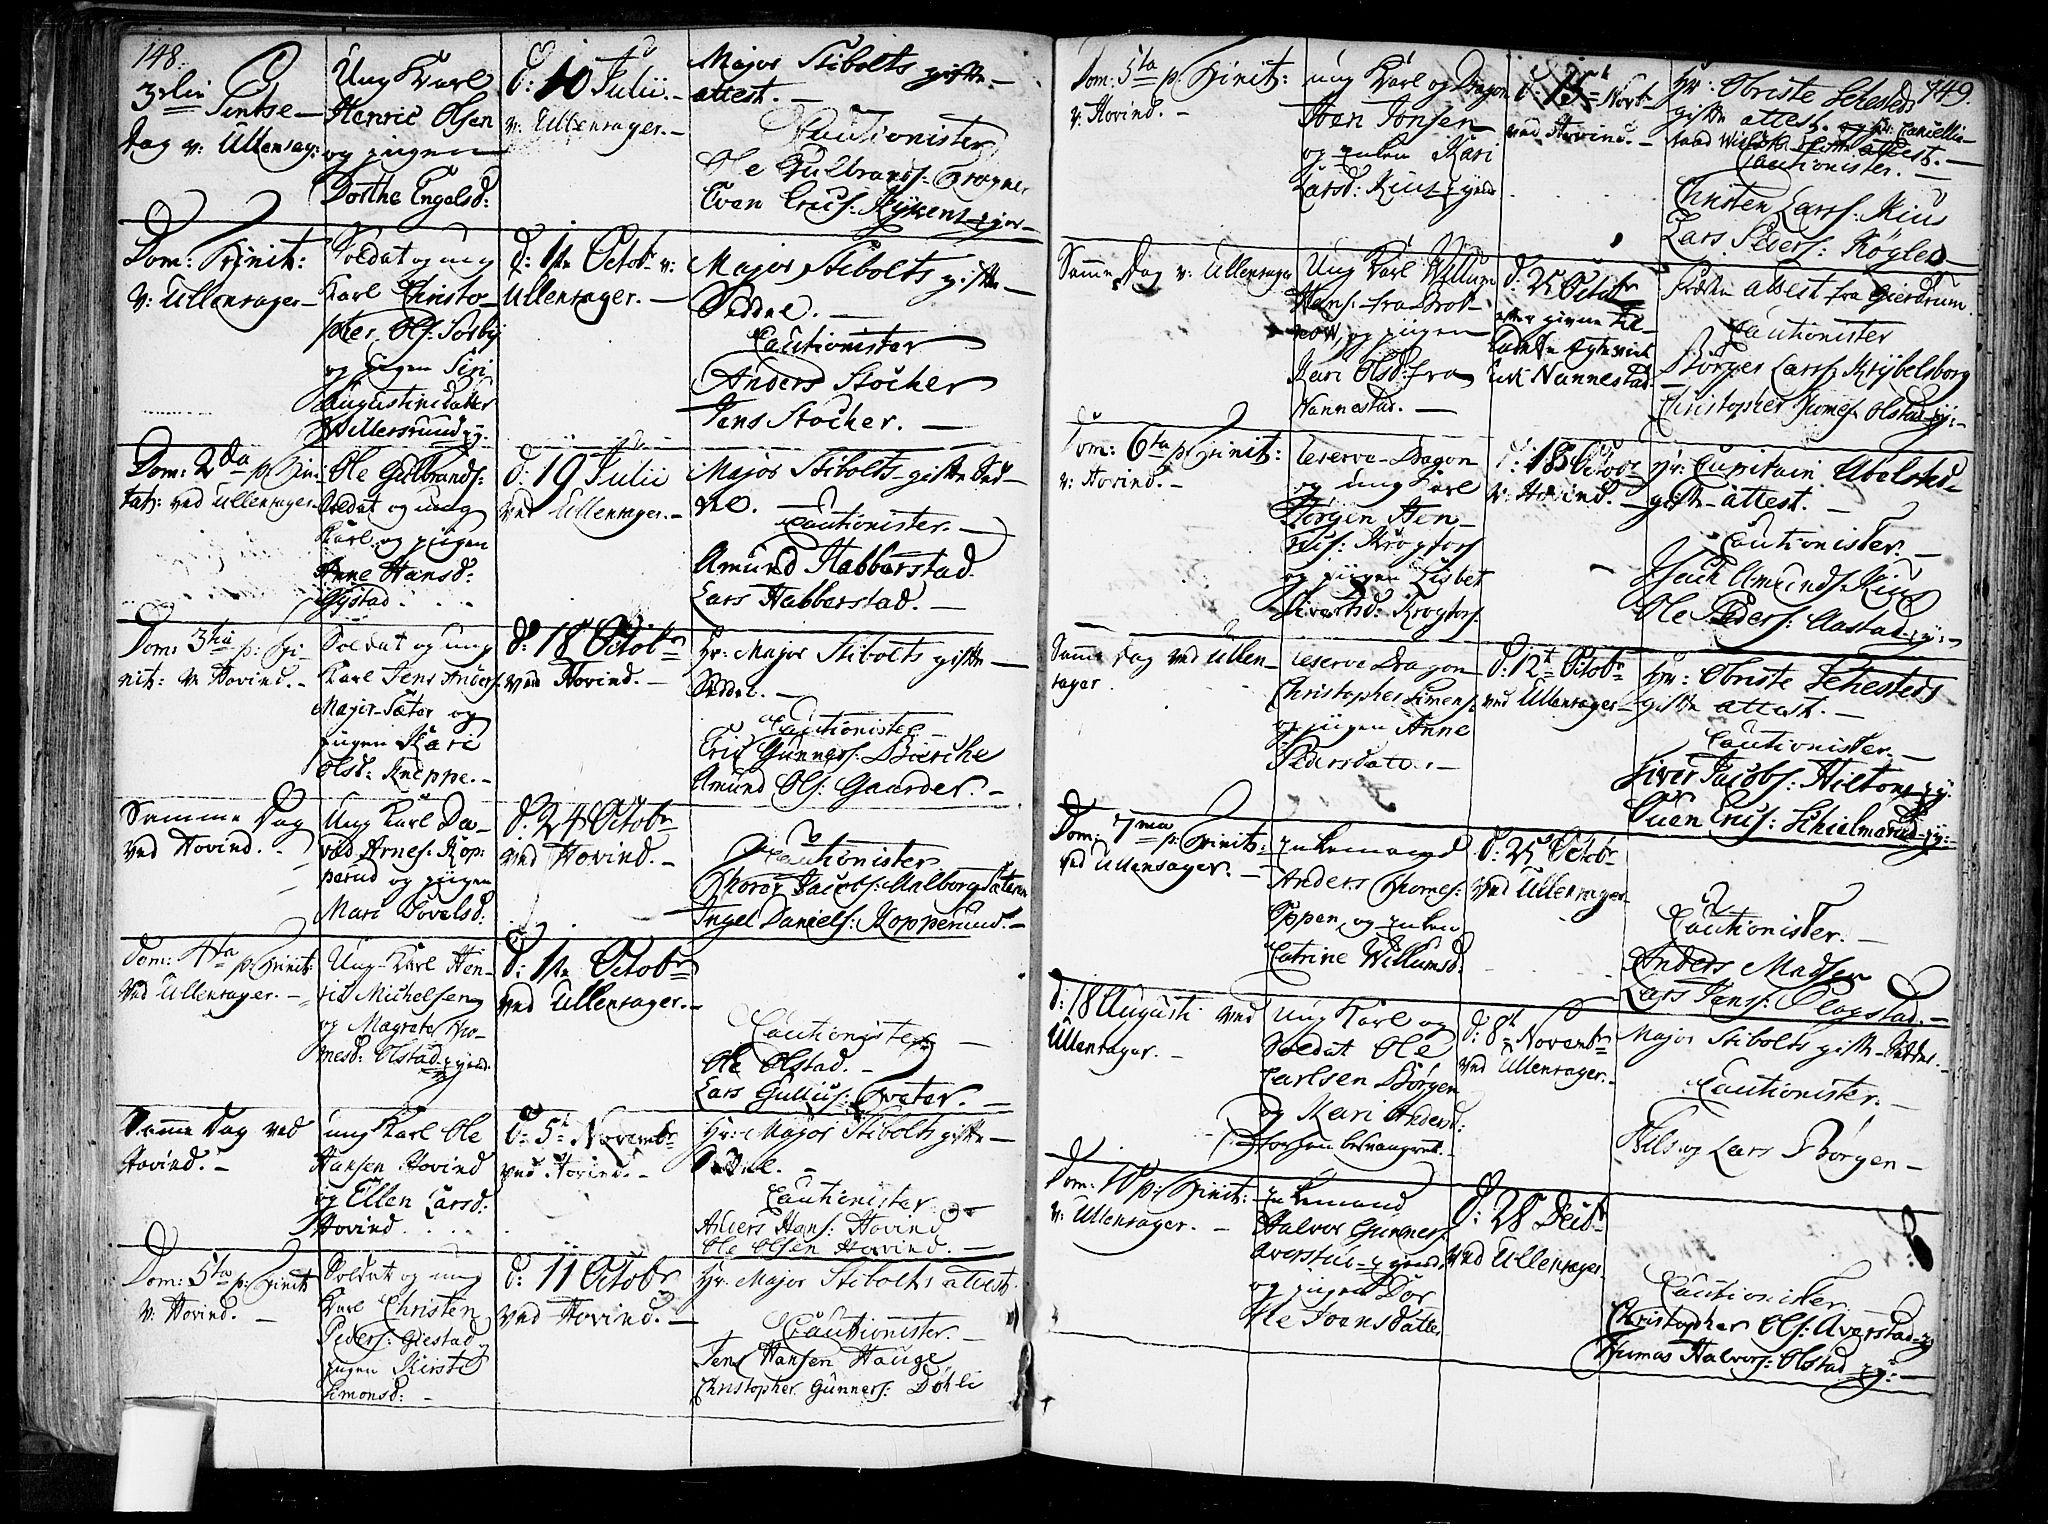 148.
3die Pintse-
Dag v: Ullensag:
Ung Karl
Henric Olsen
og pigen
Dorthe Engelsd:
d: 10 Julii.-
v: Ullensager.-
Major Stibolts gifte-
attest.-
Cautionister
Ole Gulbrands: Trogner
Even Erics:
Dom: Trinit:
v: Ullensager-
Soldat og ung
Karl Christo-
pher Ols: Sørby
og pigen Siri
Augustinidatter
Willersrund
d: 1te Octob v:
Ullensager.-
Major Stibolts gifte-
Seddel.-
Cautionister
Anders Stocher
Jens Stocher.-
Dom: 2da p: Trini-
tat: ved Ullensager-
Ole Gulbrands:
Soldat og ung
Karl og pigen
Anne Hansd:
Gystad
d: 19 Julii
ved Ullensager.-
Major Stibolts gifte Sed-
del.-
Cautionister.-
Amund Habberstad
Lars Habberstad.-
Dom: 3tia p: Tri-
nit: v: Hovind.-
Soldat og ung
Karl Jens Anders:
Majer-Sæter og
pigen Kari
Olsd: Kneppe.-
d: 18 Octobr
ved Hovind.-
Hr: Major Stibolts gifte-
Seddel.-
Cautionister-
Eric Gunners: Bierche
Amund Ols: Gaarder.-
Samme Dag
ved Hovind.-
Ung Karl Da-
vid Arnes: Kop-
perud og pigen
Mari Povelsd:
d: 24 Octobr
ved Hovind.-
Cautionister
Thorer Jacobs: Malborg Sæteren
Ingel Daniels: Kopperund.-
Dom: 4ta p: Trinit:
ved Ullensager.-
Ung Karl Hen-
ric Michelsen
og Magrete Tho-
mesd: Olstad
d: 1te Octobr
ved Ullensager.-
Cautionister-
Ole Olstad.-
Lars Gullus: Qvater.-
Samme Dag ved
Hovind.-
ung Karl Ole
Hansen Hovind
og Ellen Larsd:
Hovind
d: 5t Novembr
ved Hovind.-
Hr: Major Stibolts gifte-
Seddel.-
Cautionister
Anders Hans: Hovind
Ole Olsen Hovind.-
Dom: 5ta p: Trinit
v: Hovind.-
Soldat og ung
Karl Christen
Peders: Giestad
pigen Kirsti
Simonsd:-
d: 11 Octobr
ved Hovind.-
Hr: Major Stibolts attest.
Cautionister.-
Jens Hansen Hauge
Christopher Gunners: Døhli
149.
Dom: 5ta p: Trinit:
v: Hovind.-
ung Karl og Dragon
Iven Jonsen
og enken Kari
Larsd: Kius
d: 15t Novb
ved Hovind.-
Hr: Obriste Sehesteds
gifte attest.
attest.-
Cautionister.-
Christen Larss: Kius
Lars Peders: Røgler
Samme Dag v: Ullensager
Ung Karl Willum
Hans: fra
og pigen
Kari Olsd: fra
Nannestad.-
d: 25 Octobr
efter given til-
ladelse
udi Nannestad.
attest fra Gierdrum
Cautionister
Børger Larss: Krybelsborg
Christopher Thomes: Olstad
Dom: 6ta p: Trinit:
v: Hovind.-
reserve-Dragon
og ung Karl
Jørgen Hen-
rics: Krogtorp
og pigen Lisbet
Sivertsd: Krogtorp
d: 18 Octobr
v: Hovind.-
Hr: Capitain Abelsted
gifte-attest.-
Cautionister.-
Isach Amunds: Kius
Ole Peders: Aastad
Samme Dag ved Ullen-
sager.
reserve Dragon
Christopher Simens:
og pigen Anne
Pedersdatr.-
d: 12t Octobr
ved Ullensager-
Hr: Obriste Sehesteds
gifte attest.-
Cautionister.-
Siver Jacobs: Hilton
Even Erics: Schielmerud
Dom: 7ma p: Trinit:
ved Ullensager.-
enkemand
Anders Thomes:
Oppen, og enken
Catrine Willumsd:
d: 25 Octobr
ved Ullensager-
Cautionister.-
Anders Madsen
Lars Jens: Plogstad.-
d: 18 Augusti ved
Ullensager.-
ung Karl og
Soldat Ole
Carlsen Børgen
og Kari Andersd:
d: 8t Novembr
ved Ullensager.-
Major Stibolts gifte Seddel.-
Cautionister.-
Nils og Lars Børgen-
Dom: 10 p: Trinit:
v: Ullensager.-
enkemand
Halvor Gunners:
og pigen Dor-
the Joensdatter
d: 28 Decbr
ved Ullensager.
Cautionister
Christopher Ols: Averstad
Thomas Halvors: Olstad